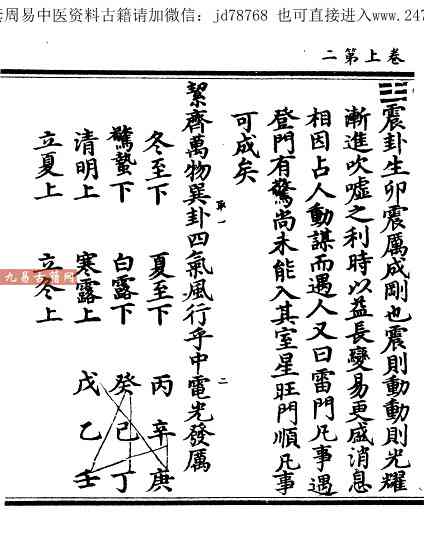 周易中医资料古籍请加微信：jd78768 也可直接进入www.247
卷上第二
震卦生卯震厲成剛也震則動動則光耀
漸進吹噓之利時以益長變易更盛消息
相因占人動謀而遇人又曰雷門凡事遇
登門有驚尚未能入其室星旺門順凡事
可成矣
絜齊萬物巽卦四氣風行乎中電光發厲
一 二
冬至下 夏至下 丙辛庚
驚蟄下 白露下 癸己丁
清明上 寒露上 戊乙壬
立夏上 立冬上
九易古籍网